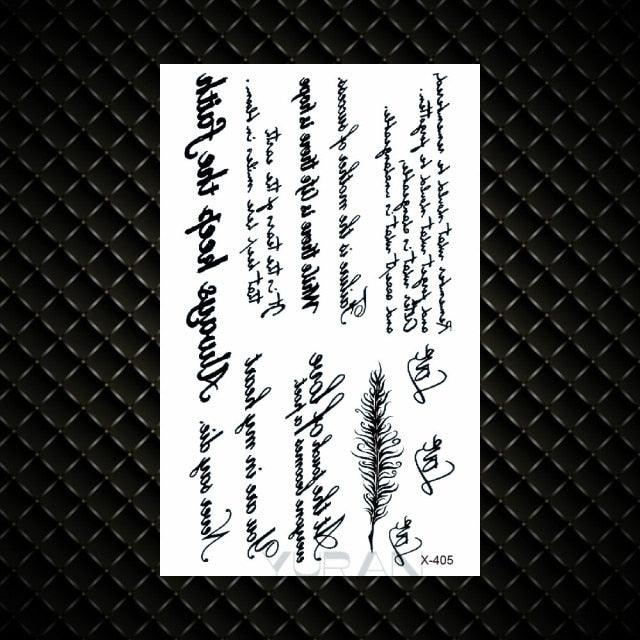 Always keep the Faith
It is the tears of the earth
that keep her smiles in bloom.
While there is life there is hope
Failure is the mother of success
Remember what should be remembered,
and forget what should be forgotten.
Alter what is changeable,
and accept what is unchangeable.
Never say die.
You are in my heart
At the touch of love
everyone becomes a poet
Love
Love
Love
YURAN
X-405